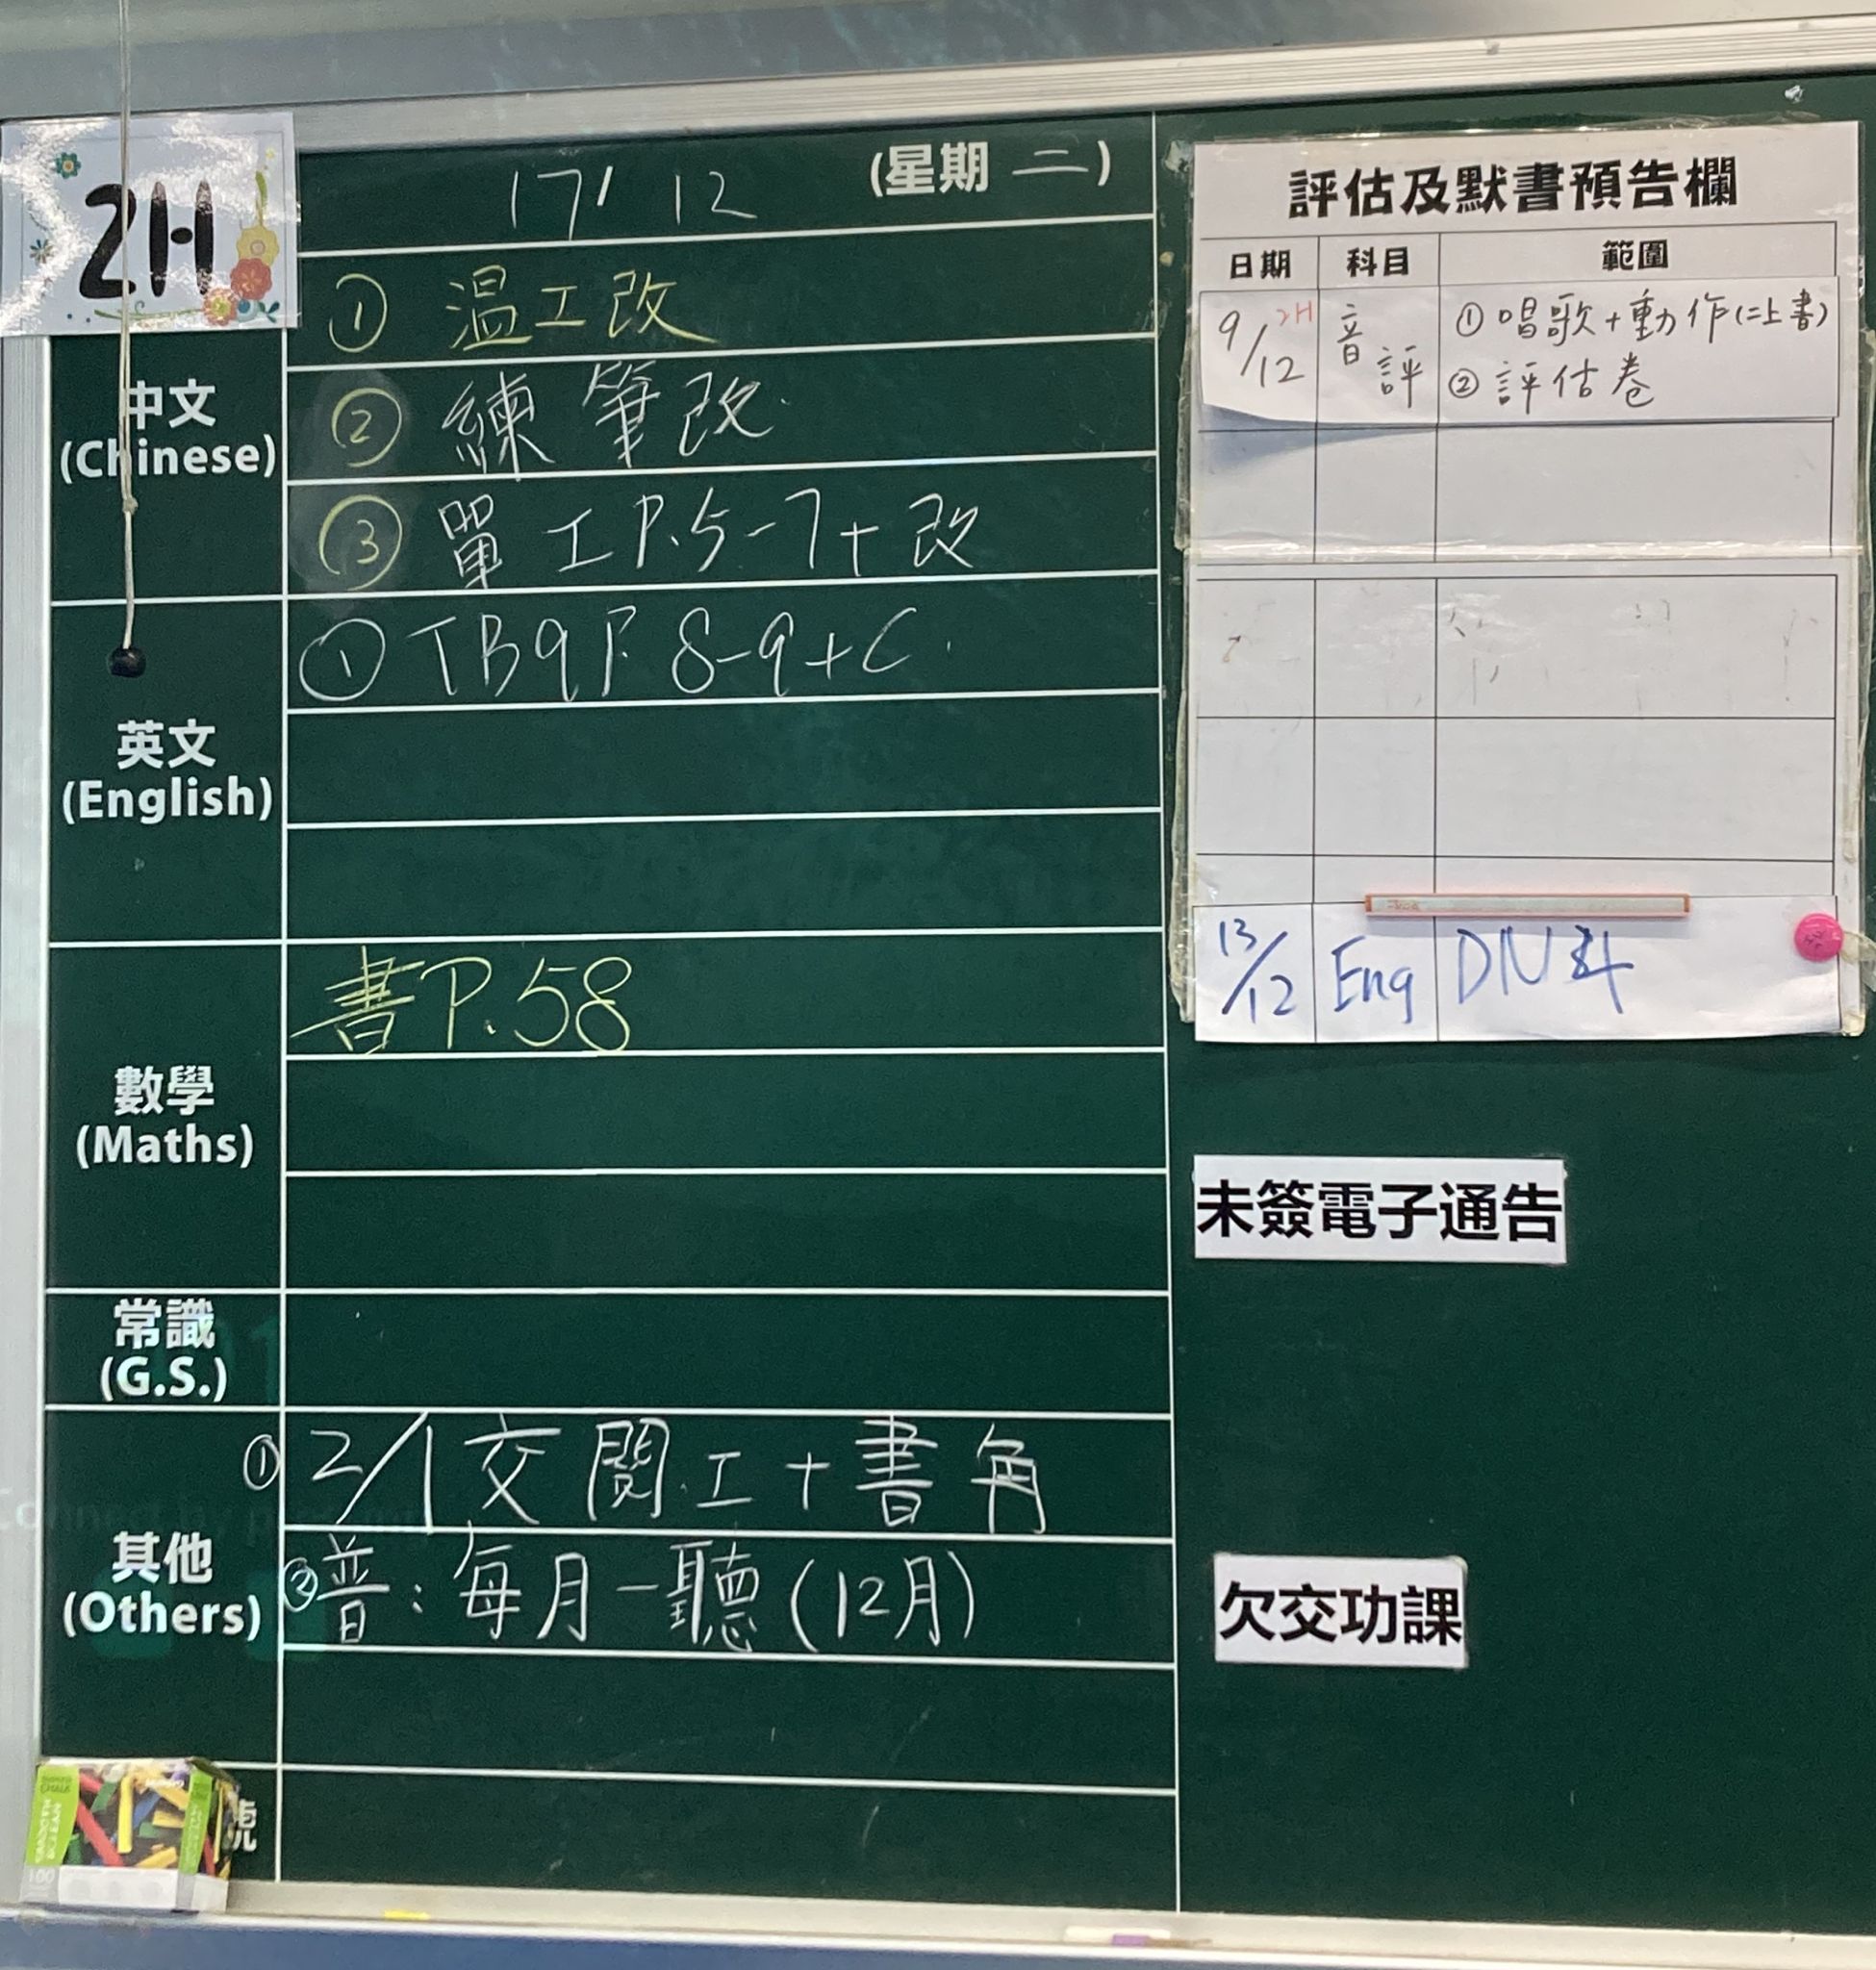 2H
17/12 (星期二)
中文
(Chinese)
① 溫工改
② 練筆改
③ 單工P.5-7+改
英文
(English)
① TB9 P.8-9+C
數學
(Maths)
書P.58
常識
(G.S.)
其他
(Others)
① 2/1交閱工+書角
② 普：每月一聽(12月)
號
評估及默書預告欄
日期 科目 範圍
9/12 2H 音評 ① 唱歌+動作(二上書)
② 評估卷
13/12 Eng DN4
未簽電子通告
欠交功課
100